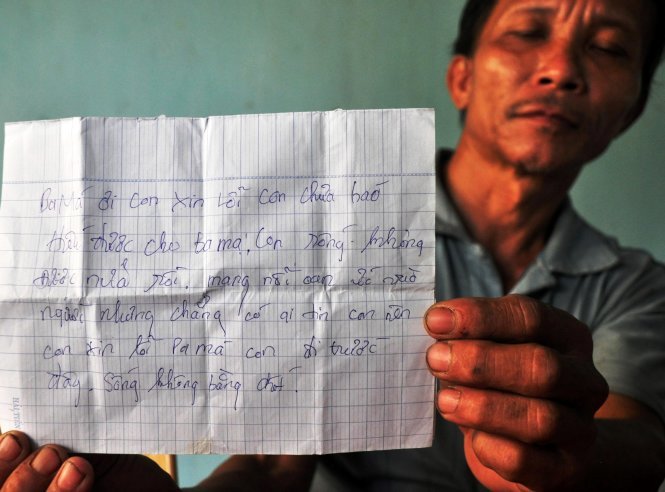 Ba Má ơi con xin lỗi con chưa báo
hiếu được cho ba má, con sống không
được nữa rồi. mang nỗi oan
người nhưng chẳng có ai tin con nên
con xin lỗi ba má con đi trước
đây. Sống không bằng chết.